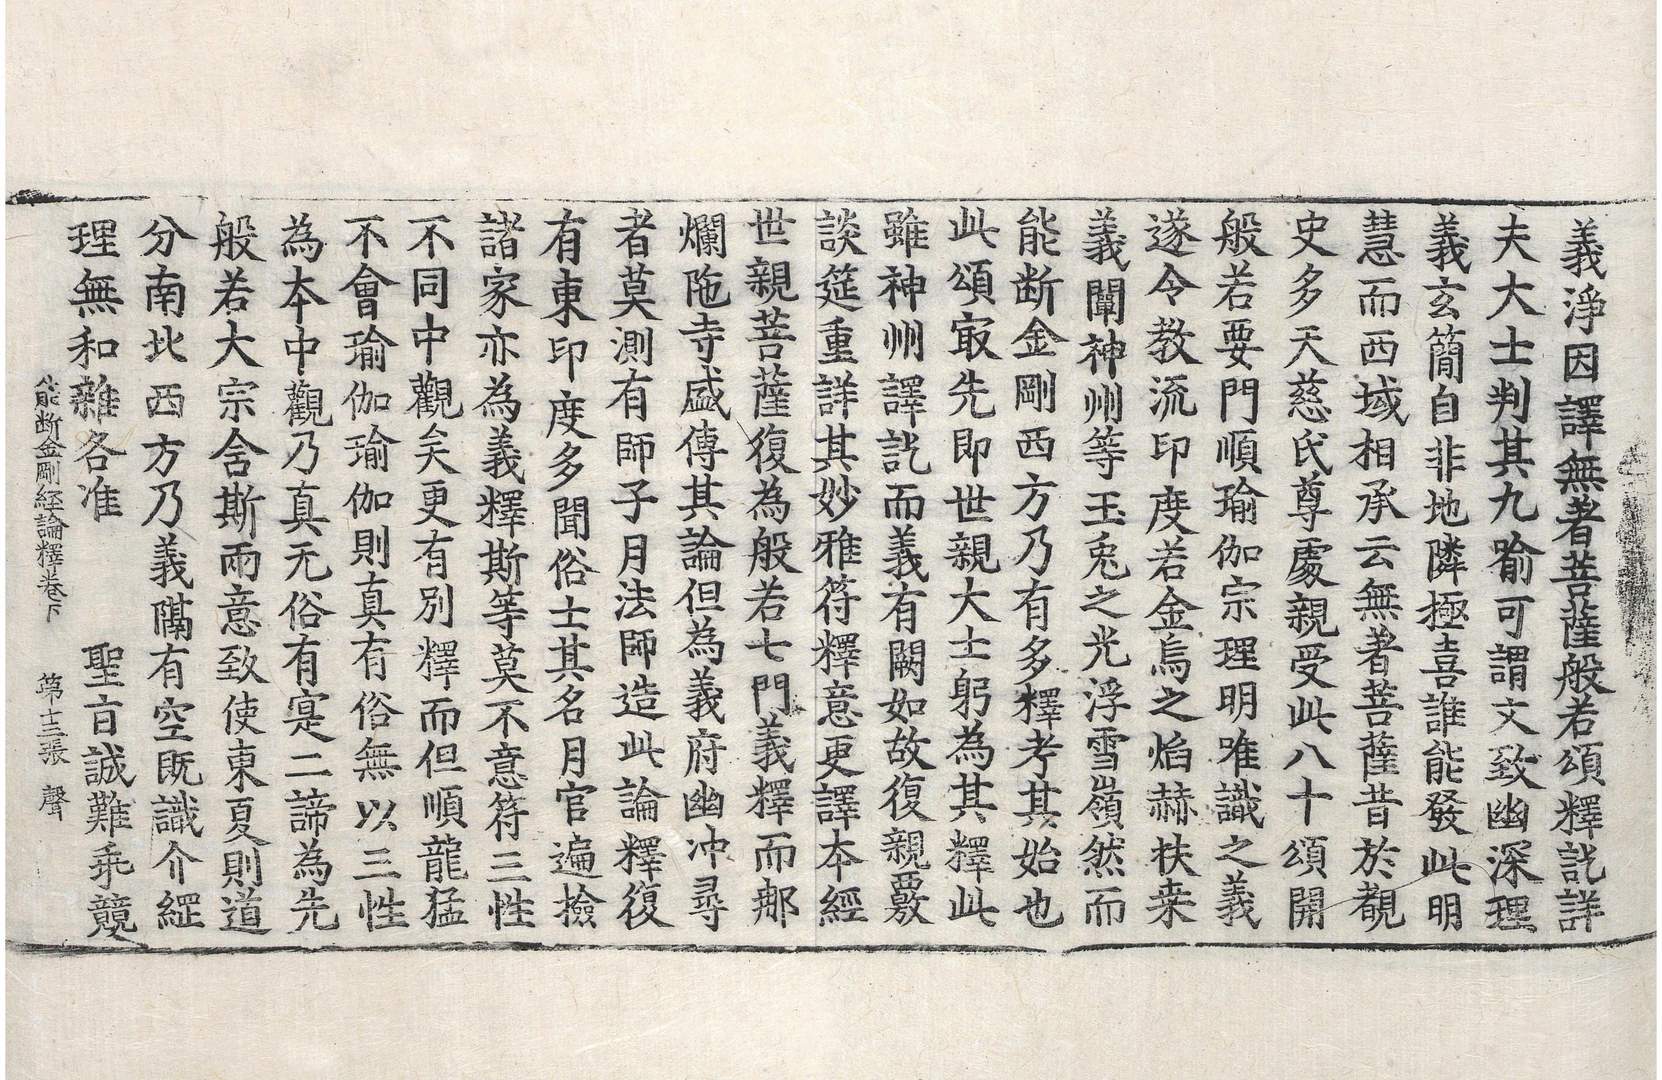 義淨因譯無著菩薩般若頌釋訖詳
夫大士判其九喻可謂文致幽深理
義玄簡自非地隣極喜誰能發此明
慧而西域相承云無著菩薩昔於覩
史多天慈氏尊處親受此八十頌開
般若要門順瑜伽宗理明唯識之義
遂令教流印度若金烏之焰赫扶桒
義闡神州等玉兎之光浮雪嶺然而
能断金剛西方乃有多釋考其始也
此頌㝡先即世親大士躬為其釋此
雖神州譯訖而義有闕如故復親覈
談筵重詳其妙雅符釋意更譯夲經
世親菩薩復為般若七門義釋而𨚗
爛陁寺盛傳其論但為義府幽冲尋
者莫測有師子月法師造此論釋復
有東印度多聞俗士其名月官遍撿
諸家亦為義釋斯等莫不意符三性
不同中觀矣更有別釋而但順龍猛
不會瑜伽瑜伽則真有俗無以三性
為夲中觀乃真无俗有寔二諦為先
般若大宗含斯兩意致使東夏則道
分南北西方乃義隔有空既識介綎
理無和雜各准　聖旨誠難乖競
能断金剛經論釋卷下　苐十三張　聲